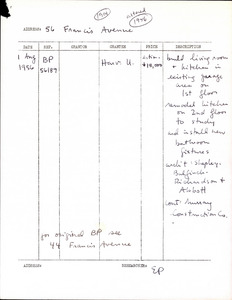 1900 altered 1956
ADDRESS: 56 Francis Avenue
DATE REF. GRANTOR GRANTEE PRICE DESCRIPTION
1 Aug 1956 BP 56189 Harv U. $18,000 build living room
+ kitchen in
existing garage
area on
1st floor
remodel kitchen
on 2nd floor
to study
and install new
bathroom
fixtures
archit: Shepley
Bulfinch
Richardson &
Abbott
cont: Murray
Construction Co.
for original BP see
44 Francis Avenue
ADDRESS: RESEARCHER:
EP